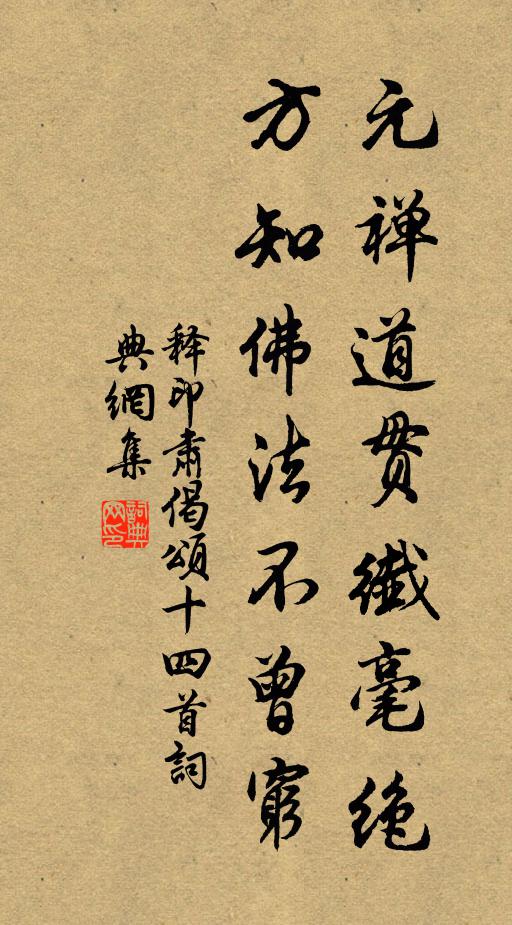 元禅道贯纤毫绝
方知佛法不曾窮
释印肃偈頌十四首詞
典網集
詞典网印